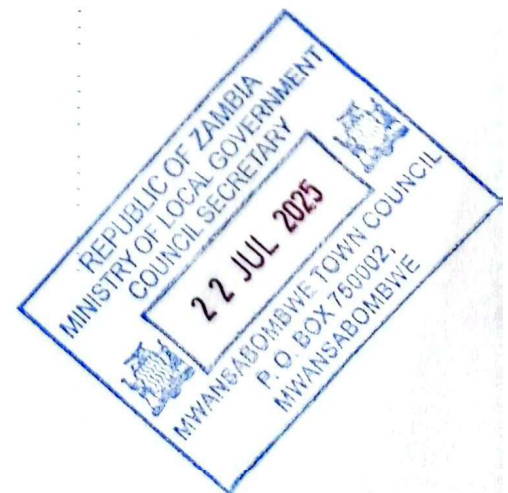 REPUBLIC OF ZAMBIA
MINISTRY OF LOCAL GOVERNMENT
COUNCIL SECRETARY
22 JUL 2025
MWANSABOMBWE TOWN COUNCIL
P. O. BOX 750002,
MWANSABOMBWE